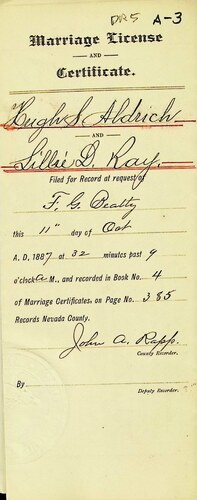 DR5 A-3
Marriage License
AND
Certificate.
Hugh S. Aldrich
AND
Lillie D. Ray.
Filed for Record at request of
F. G. Beatty
this 11" day of Oct
A. D. 1887 at 32 minutes past 9
o'clock A M., and recorded in Book No. 4
of Marriage Certificates, on Page No. 385
Records Nevada County.
John A. Rapp.
County Recorder.
By
Deputy Recorder.